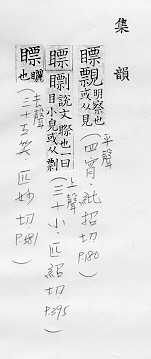 集韻
瞟覫明察也或从見(四宵.紕招切P.180)平聲
瞟𥋧說文瞭也一曰目小見或从剽(三十小.匹紹切P.395)上聲
瞟䁾也(三十五笑.匹妙切P.581)去聲